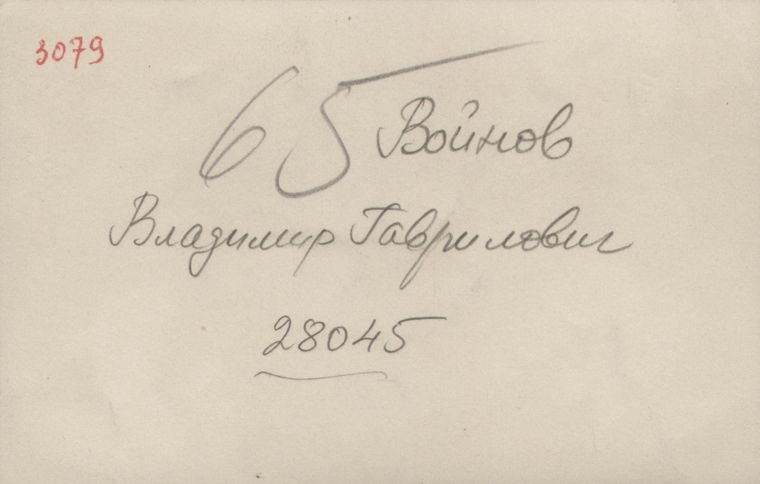 3079
65 Войнов
Владимир Гаврилович
28045